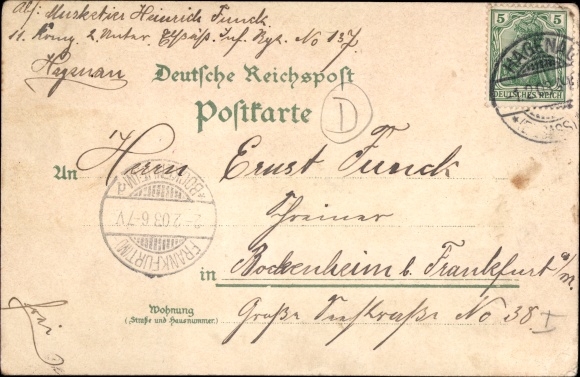 Abs: Musketier Heinrich Funck.
11. Komp. 2. Unter. Elsäss. Inf. Rgt. No 137
Hagenau
5 5
DEUTSCHES REICH
HAGENAU
(ELSASS)
Deutsche Reichspost
Postkarte
D
An Herrn Ernst Funck
Schreiner
in Bockenheim b. Frankfurt a/m.
BOCKENHEIM
2.2.03.6-7V
FRANKFURT(M)
Wohnung
(Straße und Hausnummer)
Große Seestraße No 38 I
frei